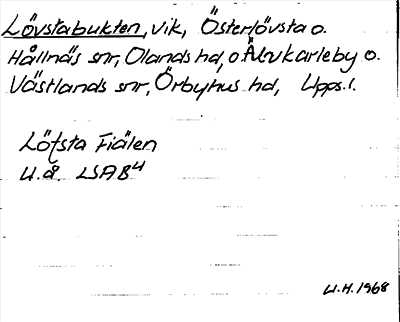 Lövstabukten, vik, Österlövsta o.
Hållnäs snr, Olands hd, o Älvkarleby o.
Västlands snr, Örbyhus hd, Upps.l.
Löfsta Fiälen
U.å. LSAB4
U.H. 1968